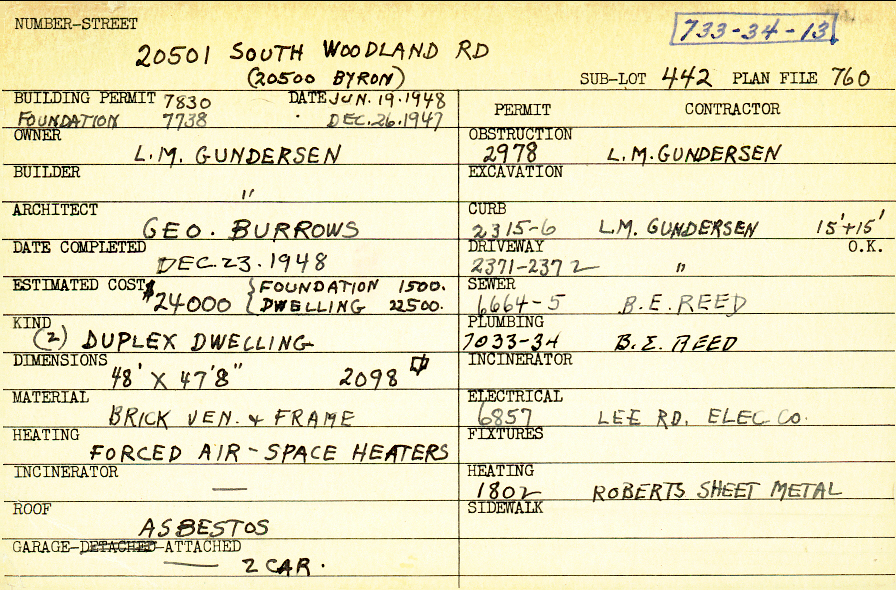 NUMBER-STREET
733-34-13
20501 SOUTH WOODLAND RD
(20500 BYRON)
SUB-LOT 442 PLAN FILE 760
BUILDING PERMIT 7830 DATE JUN. 19. 1948
FOUNDATION 7738 DEC. 26. 1947
OWNER
L. M. GUNDERSEN
BUILDER
"
ARCHITECT
GEO. BURROWS
DATE COMPLETED
DEC. 23. 1948
ESTIMATED COST
$24000 { FOUNDATION 1500.
DWELLING 22500.
KIND
(2) DUPLEX DWELLING
DIMENSIONS
48' X 47'8" 2098
MATERIAL
BRICK VEN. & FRAME
HEATING
FORCED AIR - SPACE HEATERS
INCINERATOR
—
ROOF
ASBESTOS
GARAGE-DETACHED-ATTACHED
— 2 CAR.
PERMIT CONTRACTOR
OBSTRUCTION
2978 L. M. GUNDERSEN
EXCAVATION
CURB
2315-6 L.M. GUNDERSEN 15'+15'
DRIVEWAY O.K.
2371-2372 "
SEWER
6664-5 B. E. REED
PLUMBING
7033-34 B. E. REED
INCINERATOR
ELECTRICAL
6857 LEE RD. ELEC. CO.
FIXTURES
HEATING
1802 ROBERTS SHEET METAL
SIDEWALK